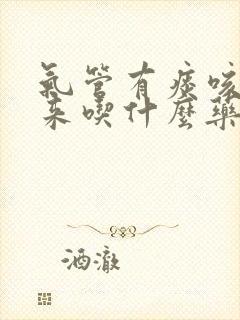 氣管有痰咳
來喫什麼藥
酒澈